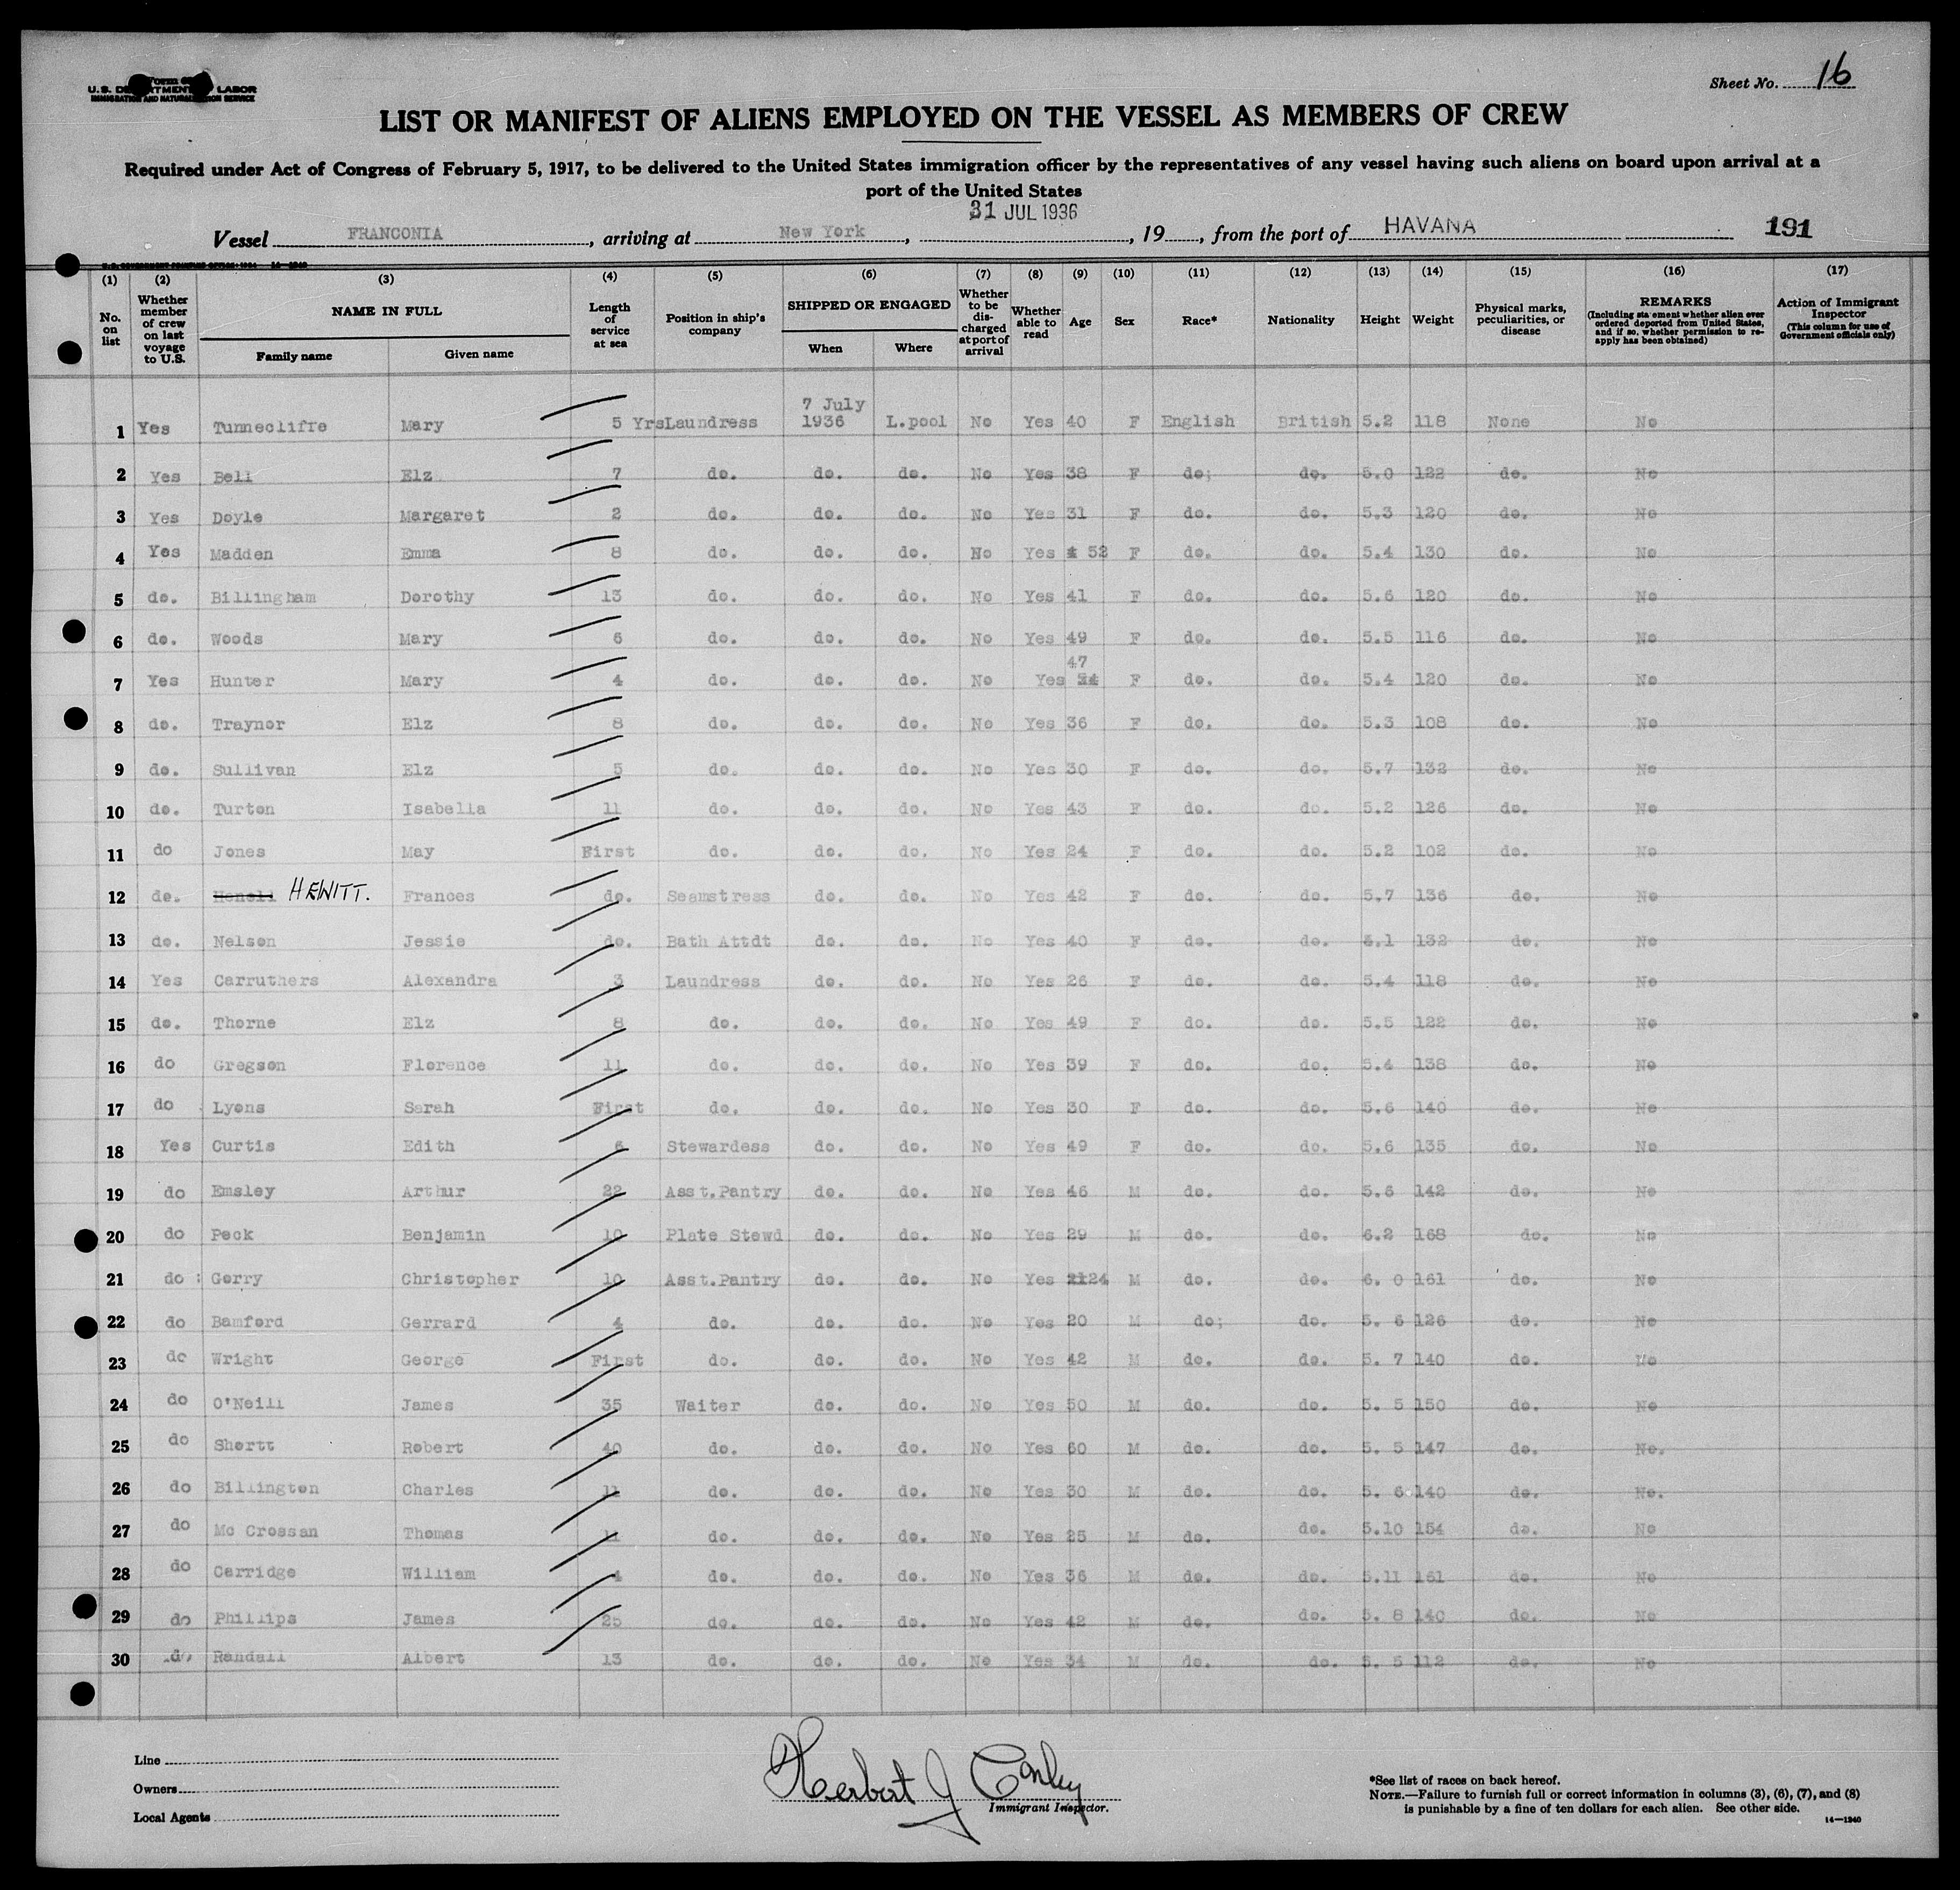 U.S. DEPARTMENT LABOR
IMMIGRATION AND NATURALIZATION SERVICE
Sheet No. 16
LIST OR MANIFEST OF ALIENS EMPLOYED ON THE VESSEL AS MEMBERS OF CREW
Required under Act of Congress of February 5, 1917, to be delivered to the United States immigration officer by the representatives of any vessel having such aliens on board upon arrival at a
port of the United States
31 JUL 1936
Vessel FRANCONIA, arriving at New York, , 19 , from the port of HAVANA 191
(1) (2) (3) (4) (5) (6) (7) (8) (9) (10) (11) (12) (13) (14) (15) (16) (17)
No. on list Whether member of crew on last voyage to U.S. NAME IN FULL Family name Given name Length of service at sea Position in ship's company SHIPPED OR ENGAGED When Where Whether to be discharged at port of arrival Whether able to read Age Sex Race* Nationality Height Weight Physical marks, peculiarities, or disease REMARKS (Including statement whether alien ever ordered deported from United States, and if so, whether permission to reapply has been obtained) Action of Immigrant Inspector (This column for use of Government officials only)
7 July
1 Yes Tunnecliffe Mary 5 Yrs Laundress 1936 L.pool No Yes 40 F English British 5.2 118 None No
2 Yes Bell Elz 7 do. do. do. No Yes 38 F do; do. 5.0 122 do. No
3 Yes Doyle Margaret 2 do. do. do. No Yes 31 F do. do. 5.3 120 do. No
4 Yes Madden Emma 8 do. do. do. No Yes 52 F do. do. 5.4 130 do. No
5 do. Billingham Dorothy 13 do. do. do. No Yes 41 F do. do. 5.6 120 do. No
6 do. Woods Mary 6 do. do. do. No Yes 49 F do. do. 5.5 116 do. No
47
7 Yes Hunter Mary 4 do. do. do. No Yes F do. do. 5.4 120 do. No
8 do. Traynor Elz 8 do. do. do. No Yes 36 F do. do. 5.3 108 do. No
9 do. Sullivan Elz 5 do. do. do. No Yes 30 F do. do. 5.7 132 do. No
10 do. Turton Isabella 11 do. do. do. No Yes 43 F do. do. 5.2 126 do. No
11 do Jones May First do. do. do. No Yes 24 F do. do. 5.2 102 do. No
12 do. HEWITT. Frances do. Seamstress do. do. No Yes 42 F do. do. 5.7 136 do. No
13 do. Nelson Jessie do. Bath Attdt do. do. No Yes 40 F do. do. 132 do. No
14 Yes Carruthers Alexandra 3 Laundress do. do. No Yes 26 F do. do. 5.4 118 do. No
15 do. Thorne Elz 8 do. do. do. No Yes 49 F do. do. 5.5 122 do. No
16 do Gregson Florence 11 do. do. do. No Yes 39 F do. do. 5.4 138 do. No
17 do Lyons Sarah First do. do. do. No Yes 30 F do. do. 5.6 140 do. No
18 Yes Curtis Edith 6 Stewardess do. do. No Yes 49 F do. do. 5.6 135 do. No
19 do Emsley Arthur 22 Asst.Pantry do. do. No Yes 46 M do. do. 5.6 142 do. No
20 do Peck Benjamin 10 Plate Stewd do. do. No Yes 29 M do. do. 6.2 168 do. No
21 do Gerry Christopher 10 Asst.Pantry do. do. No Yes 24 M do. do. 6. 0 161 do. No
22 do Bamford Gerrard 4 do. do. do. No Yes 20 M do; do. 5. 6 126 do. No
23 do Wright George First do. do. do. No Yes 42 M do. do. 5. 7 140 do. No
24 do O'Neill James 35 Waiter do. do. No Yes 50 M do. do. 5. 5 150 do. No
25 do Shortt Robert 40 do. do. do. No Yes 60 M do. do. 5. 5 147 do. No.
26 do Billington Charles 11 do. do. do. No Yes 30 M do. do. 5. 6 140 do. No.
27 do Mc Crossan Thomas 11 do. do. do. No Yes 25 M do. do. 5.10 154 do. No
28 do Carridge William 4 do. do. do. No Yes 36 M do. do. 5.11 161 do. No
29 do Phillips James 25 do. do. do. No Yes 42 M do. do. 5. 8 140 do. No
30 do Randall Albert 13 do. do. do. No Yes 34 M do. do. 5. 5 112 do. No
Line
Owners
Local Agents
Herbert J Conley
Immigrant Inspector.
*See list of races on back hereof.
NOTE.—Failure to furnish full or correct information in columns (3), (6), (7), and (8)
is punishable by a fine of ten dollars for each alien. See other side.
14—1240